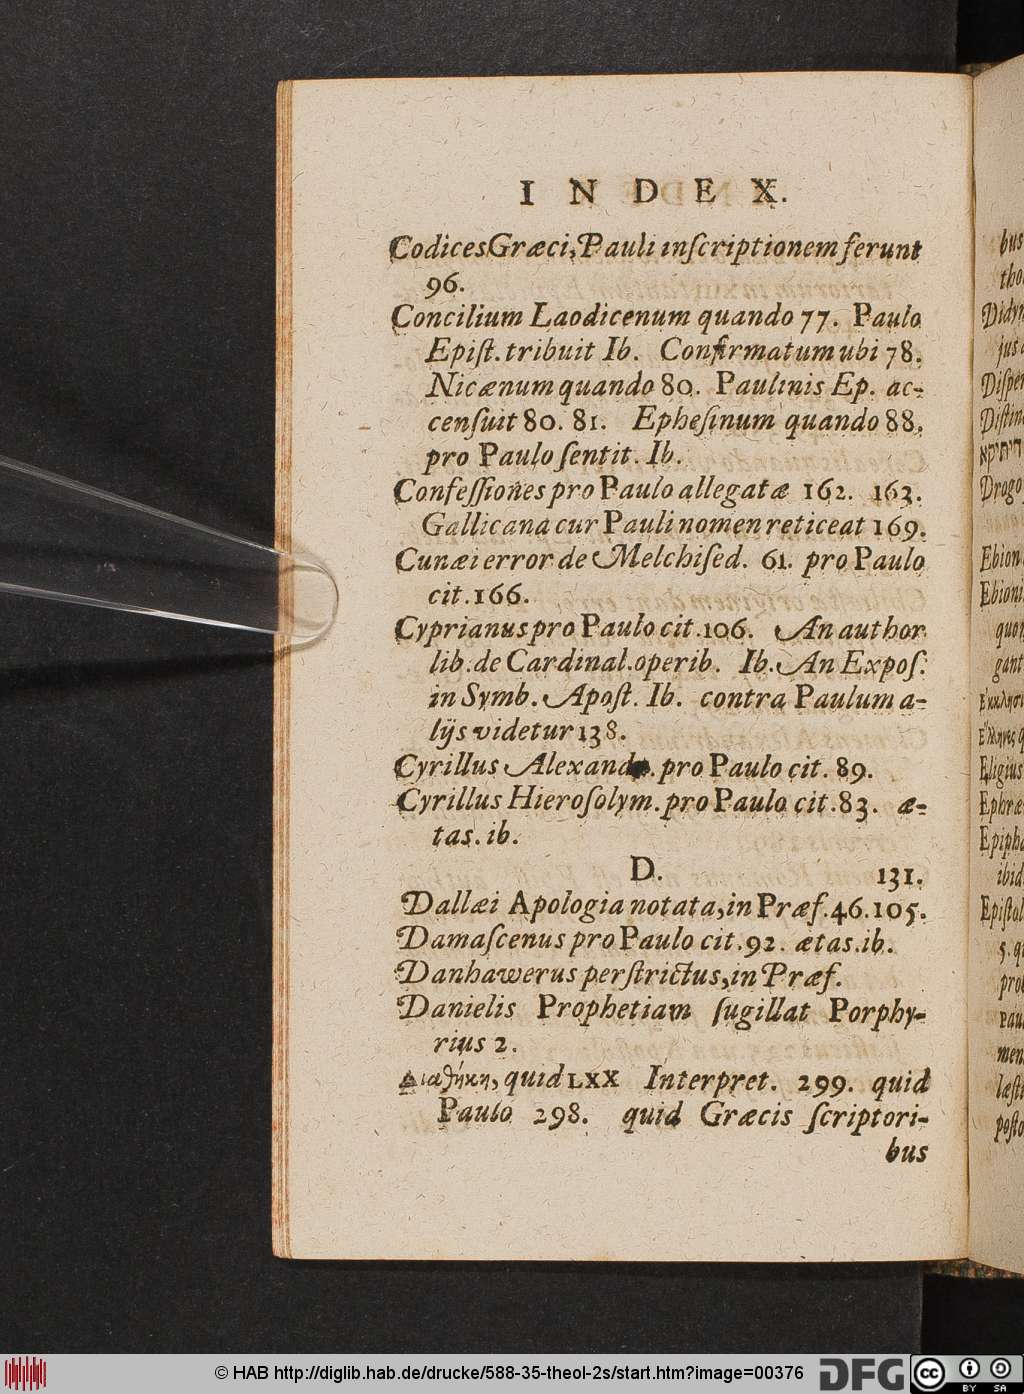 INDEX.
Codices Græci, Pauli inſcriptionem ferunt
96.
Concilium Laodicenum quando 77. Paulo
Epiſt. tribuit Ib. Confirmatum ubi 78.
Nicænum quando 80. Paulinis Ep. ac-
cenſuit 80. 81. Epheſinum quando 88.
pro Paulo ſentit. Ib.
Confeſſiones pro Paulo allegatæ 162. 163.
Gallicana cur Pauli nomen reticeat 169.
Cunæi error de Melchiſed. 61. pro Paulo
cit. 166.
Cyprianus pro Paulo cit. 106. An author
lib. de Cardinal. operib. Ib. An Expoſ.
in Symb. Apoſt. Ib. contra Paulum a-
lijs videtur 138.
Cyrillus Alexandr. pro Paulo cit. 89.
Cyrillus Hieroſolym. pro Paulo cit. 83. æ-
tas. ib.
D. 131.
Dallæi Apologia notata, in Præf. 46. 105.
Damaſcenus pro Paulo cit. 92. ætas. ib.
Danhawerus perſtrictus, in Præf.
Danielis Prophetiam ſugillat Porphy-
rius 2.
Διαθήκη, quid LXX Interpret. 299. quid
Paulo 298. quid Græcis ſcriptori-
bus
bus
Didy
Epiſtol
© HAB http://diglib.hab.de/drucke/588-35-theol-2s/start.htm?image=00376
DFG
cc
BY SA